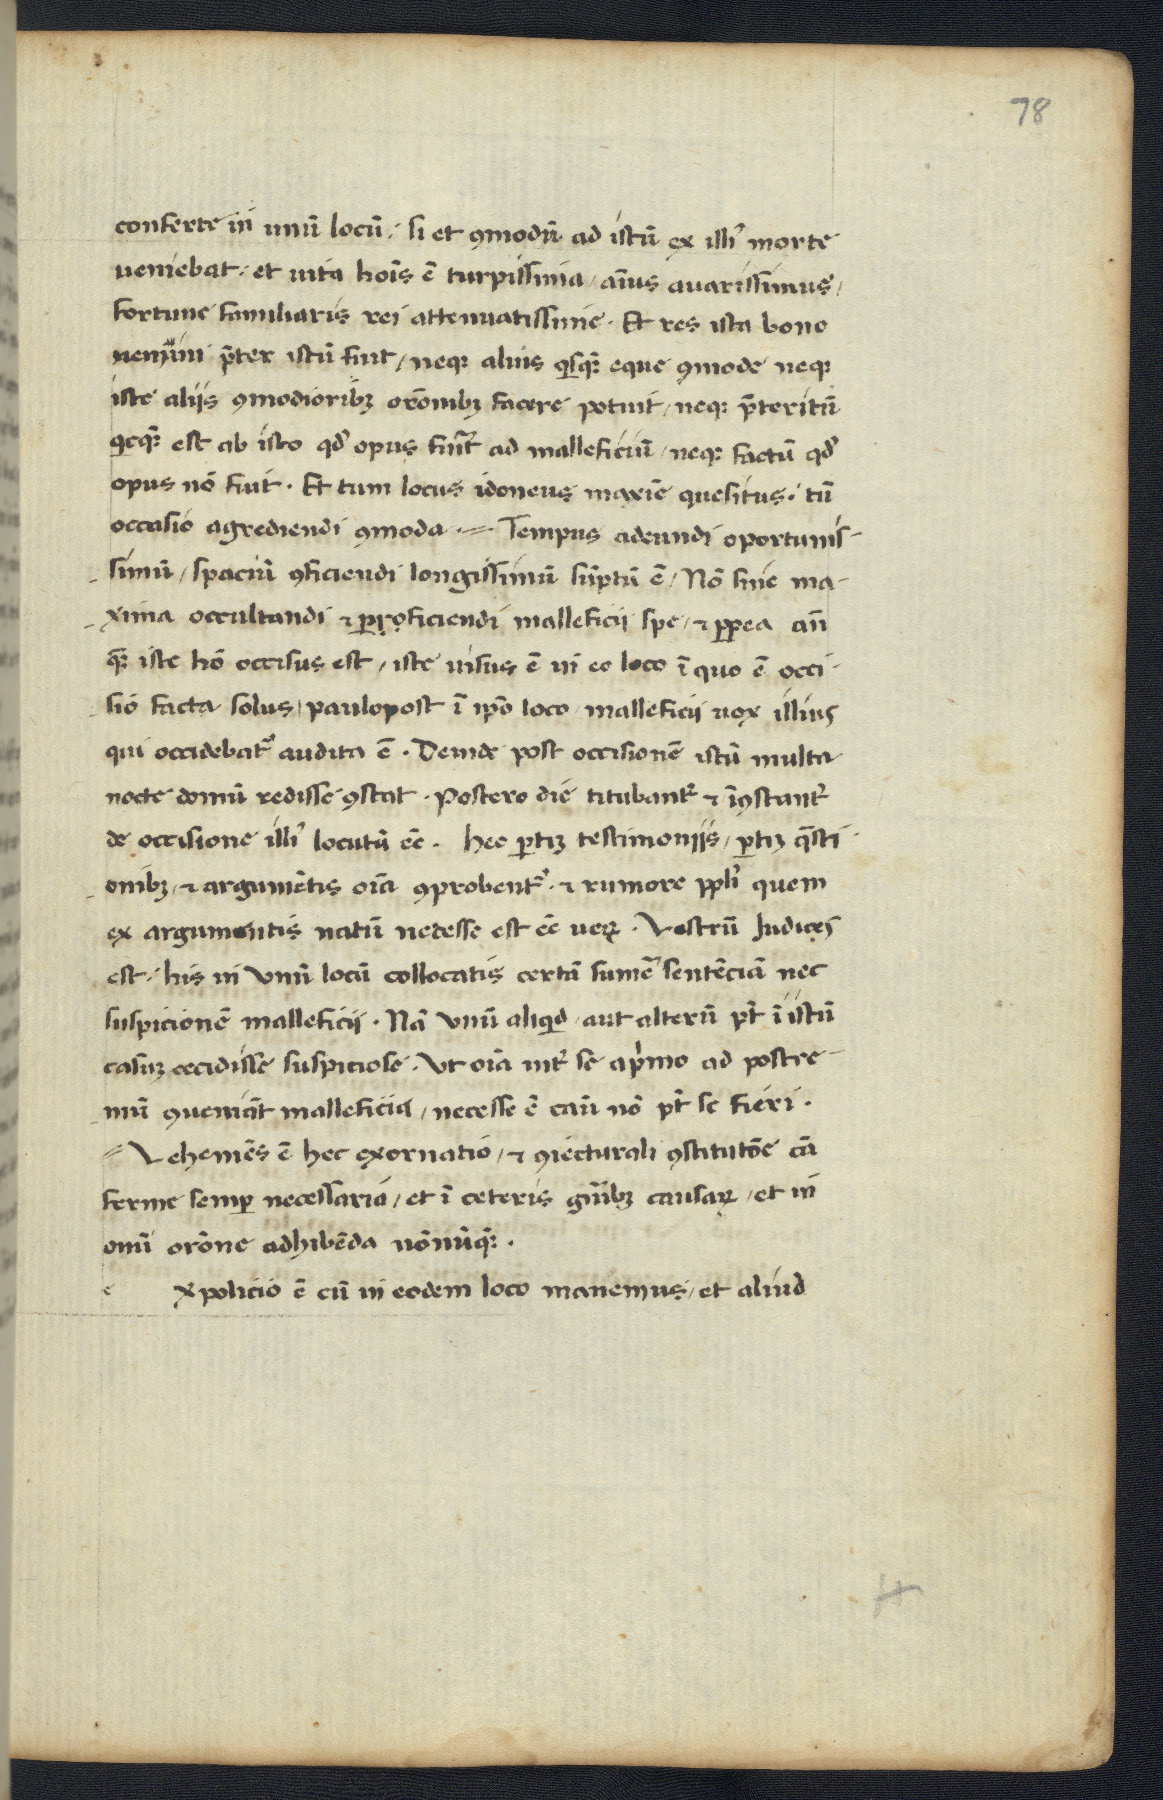 78
conferte in unū locū / si et ꝯmodū ad istū ex illiꝰ morte
ueniebat / et uita hoīs ē turpissima / aīus auarissimus /
fortune familiaris rei attenuatissime · Et res ista bono
nemini p̄ter istū fuit / neqꝫ alius qͥsqꝫ eque ꝯmode neqꝫ
iste aliis ꝯmodioribꝫ orōnibꝫ facere potuit / neqꝫ p̄teritū
est ab isto qđ opus ad malleficiū / neqꝫ factū qđ
opus nō fuit · Et tum locus idoneus maxīe quesitus · tū
occasio agrediendi ꝯmoda · Tempus adeundi oportunis-
simū / spaciū ꝯficiendi longissimū sūptū ē / Nō sine ma-
xima occultandi ⁊ ꝑficiendi malleficii spe / ⁊ an̄
qꝫ iste hō occisus est / iste uisus ē in eo loco ī quo ē occi-
sio facta solus / paulopost ī ip̄o loco malleficii uox illius
qui occidebatᷣ audita ē · Deinde post occisionē istū multa
nocte domū redisse ꝯstat · Postero die titubant᷑ ⁊ īꝯstant᷑
de occisione illiꝰ locutū eē · hec ꝑtiꝫ testimoniis / ꝑtiꝫ q̄sti
onibꝫ / ⁊ argumētis oīa ꝯprobentᷣ · ⁊ rumore ppl̓i quem
ex argumentis natū necesse est eē ueꝝ · Vestrū Judices
est / his in vnū locū collocatis certā sumē᷑ sentēciā nec
suspicionē malleficii · Nā vnū aliqͥd aut alterū pt̄ ī istū
casuꝫ cecidisse suspiciose · Vt oīa int᷑ se apͥmo ad postre-
mū ꝯueniāt malleficia / necesse ē casu nō pt̄ se fieri ·
Vehemēs ē hec exornatio / ⁊ ꝯiecturali ꝯstitutōe cā
ferme semꝑ necessaria / et ī ceteris gn̄ībꝫ causaꝝ / et in
omī orōne adhibēda nōnūqꝫ ·
e xpolicio ē cū in eodem loco manemus / et aliud